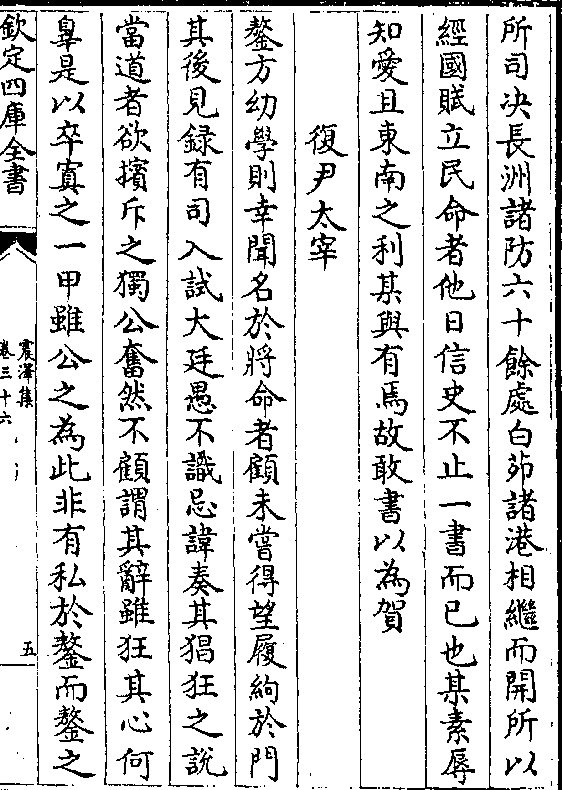 所司决長洲諸防六十餘處白茆諸港相繼而開所以
經國賦立民命者他日信史不止一書而已也某素辱
知愛且東南之利某與有焉故敢書以為賀
復尹太宰
鏊方幼學則幸聞名於將命者顧未嘗得望履絇於門
其後見録有司入試大廷愚不識忌諱奏其猖狂之說
當道者欲擯斥之獨公奮然不顧謂其辭雖狂其心何
辠是以卒寘之一甲雖公之為此非有私於鏊而鏊之
欽定四庫全書
震澤集
卷三十六
五